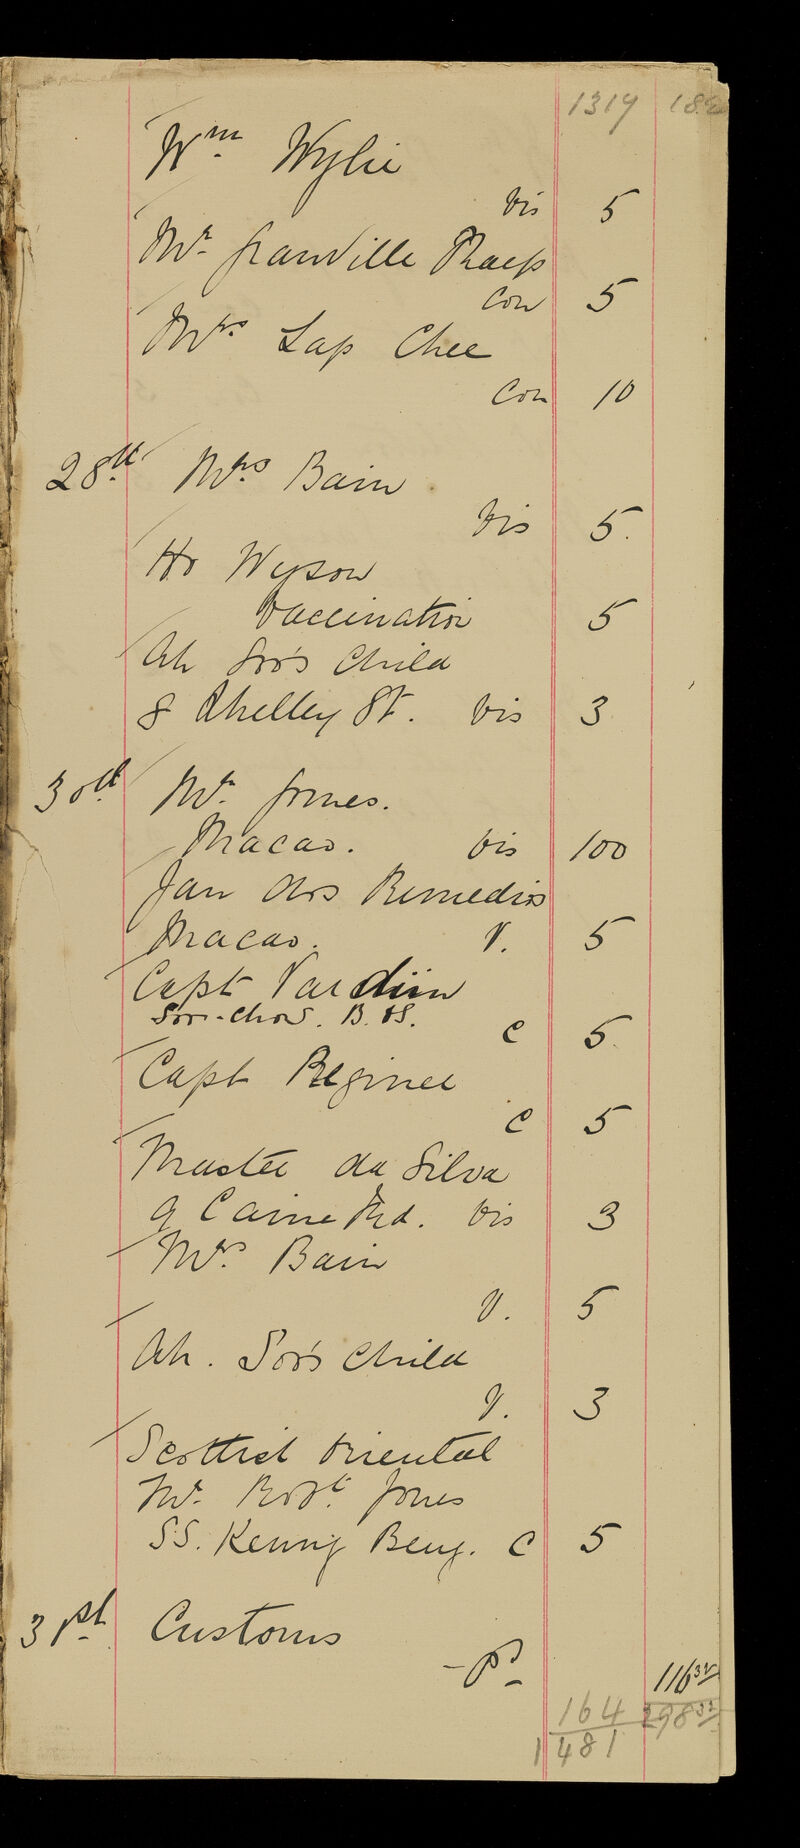 1317 182
Wm. Wylie
Vis 5
Mr. Granville Sharp
Con 5
Mrs Lap Chee
Con 10
28th. Mrs Bain
Vis 5.
Ho Wyson
Vaccination 5
Ah Soo's Child
8 Shelley St. Vis 3
30th. Mr. Jones.
Macao. Vis 100
Jan dos Remedios
Macao. V. 5
Capt Vardin
Soo-Chow. B. C 5
Capt
C 5
Master da Silva
9 Caine Rd. Vis 3
Mrs. Bain
V. 5
Ah. Soo's Child
V. 3
Scottish Oriental
Mr. Robt. Jones
SS. Keung Beng. C 5
31st Customs
116 32
164 298 32
1481